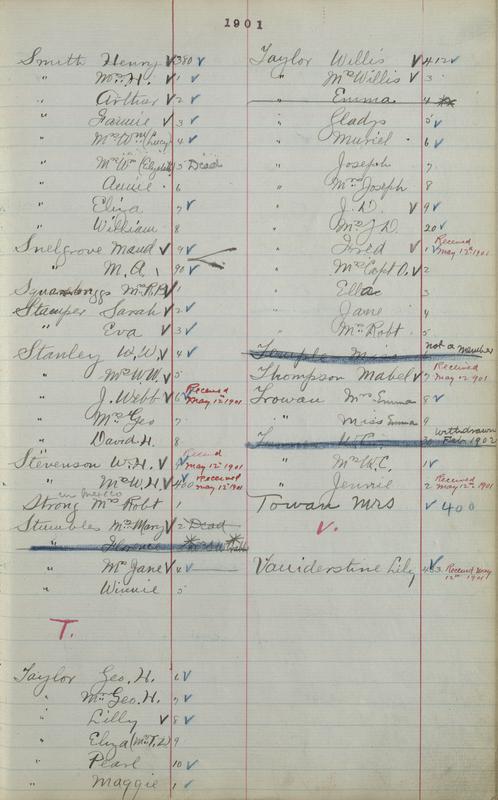 1901
Smith Henry √ 380 √
" Mrs. H. √ 1 √
" Arthur √ 2 √
" Fannie √ 3 √
" Mrs Wm (Lucy) 4 √
" Mrs Wm (Elizabeth) 5 Dead
" Annie 6
" Eliza 7 √
" William 8
Snelgrove Maud √ 9 √
" M. A. 90 √
Mrs R.B. √ 1
Stamper Sarah √ 2 √
" Eva √ 3 √
Stanley W. W. √ 4 √
" Mrs W.W. √ 5
" J. Webb √ 6 √ Received May 12th 1901
" Mrs Geo 7
" David H. 8
Stevenson W. H. √ 9 Received May 12th 1901
" Mrs W. H. √ 400 Received May 12th 1901
in Mexico
Strong Mrs Robt 1
Stumbles Mrs Mary √ 2 Dead
" Florence
" Mrs Jane √ 4 √
" Winnie 5
T.
Taylor Geo. H. 6 √
" Mrs Geo. H. 7 √
" Lilly √ 8 √
" Eliza (Mrs T. L) 9
" Pearl 10 √
" Maggie 1 √
Taylor Willis √ 412 √
" Mrs Willis √ 3
" Emma 4
" Gladys 5 √
" Muriel 6 √
" Joseph 7
" Mrs Joseph 8
" J. D. √ 9 √
" Mrs J. D. 20 √
" Fred √ 1 √ Received May 12th 1901
" Mrs Capt O. √ 2
" Ella 3
" Jane 4
" Mrs Robt 5
Temple Miss 6 not a member
Thompson Mabel √ 7 Received May 12 1901
Trowan Mrs Emma 8 √
" Miss Emma 9
W.C. 30 withdrawn Feb 1902
" Mrs W.C. 1 √
" Jennie 2 Received May 12th 1901
Towan Mrs √ 400
V.
Vaniderstine Lily 433 Received May 12th 1901